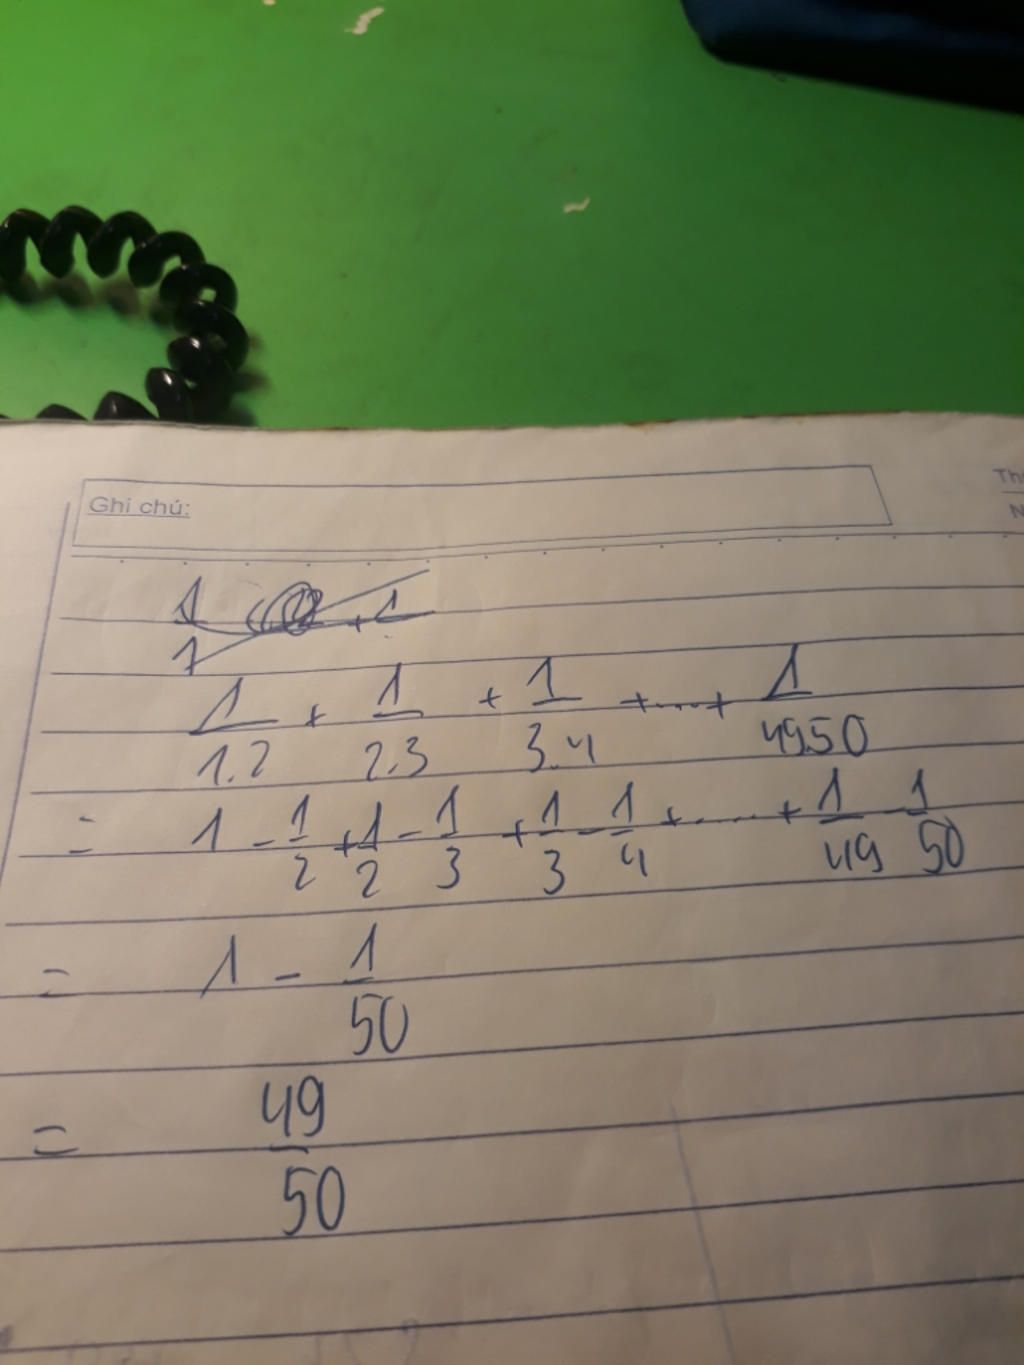 Ghi chú:
Th
N
1/1 + 1
1/1.2 + 1/2.3 + 1/3.4 + ..... + 1/49.50
= 1 - 1/2 + 1/2 - 1/3 + 1/3 - 1/4 + ...... + 1/49 - 1/50
= 1 - 1/50
= 49/50